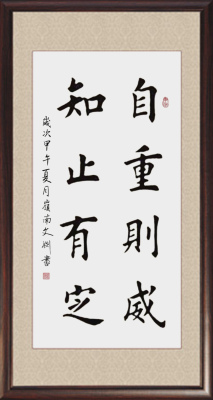 自重則威
知止有定
歲次甲午夏月嶺南文淵書